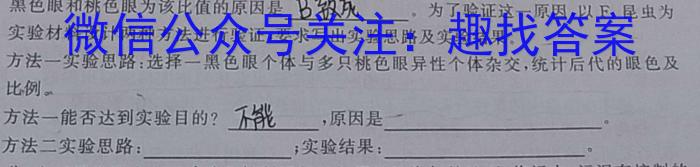 黑色眼和桃色眼为该比值的原因是 。为了验证这一原因,以下 昆虫为
实验材料 设计两种方法进行验证,要求写出实验思路及实验结果。
微信公众号关注:趣找答案
方法一实验思路:选择一黑色眼个体与多只桃色眼异性个体杂交,统计后代的眼色及
比例。
方法一能否达到实验目的? 不能 ,原因是 。
方法二实验思路: ;实验结果: 。